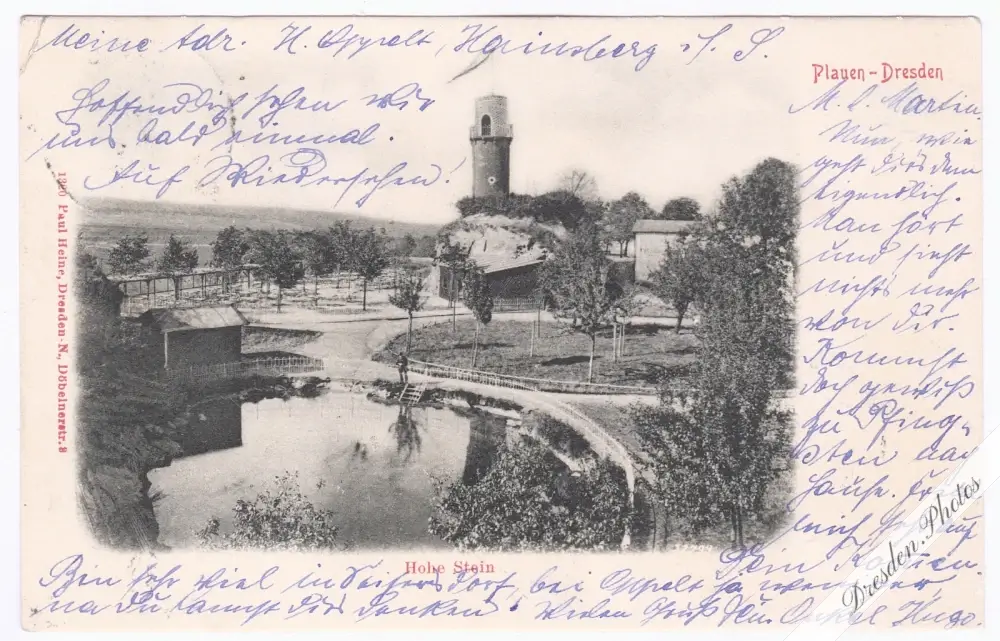 Meine Adr. H. Oppelt, Hainsberg i/S.
Hoffendlich sehen wir
uns bald einmal.
Auf Wiedersehen!
Plauen-Dresden
M. l. Martin.
Nun, wie
geht dirs denn
eigendlich.
Man hört
und sieht
nichts mehr
von dir.
Kommst
doch gewiß
zu Pfing-
sten nach
Hause.
Dein
Paul Heine, Dresden-N., Döbelnerstr. 8
Hohe Stein
Bin sehr viel in Seifersdorf, bei Oppelt ja
na Du kannst dirs denken! Vielen Gruß Onkel Hugo.
Dresden.Photos